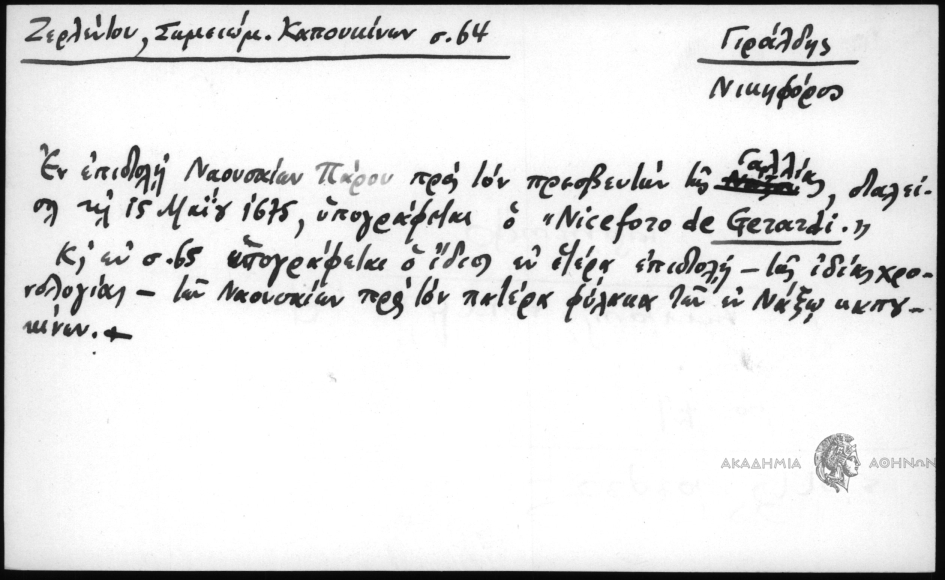 Ζερλέντου, Σημειώμ. Καπουκίνων σ. 64
Γιράλδης
Νικηφόρος
Ἐν ἐπιστολῇ Ναουσαίων Πάρου πρὸς τὸν πρεσβευτὴν τῆς Γαλλίας, σταλεί-
σῃ τῇ 15 Μαΐου 1675, ὑπογράφεται ὁ "Niceforo de Gerardi."
Κ' ἐν σ. 65 ὑπογράφεται ὁ ἴδιος ἐν ἑτέρᾳ ἐπιστολῇ – τῆς ἰδίας χρο-
νολογίας – τῶν Ναουσαίων πρὸς τὸν πατέρα φύλακα τῶν ἐν Νάξῳ καπου-
κίνων.
ΑΚΑΔΗΜΙΑ ΑΘΗΝΩΝ